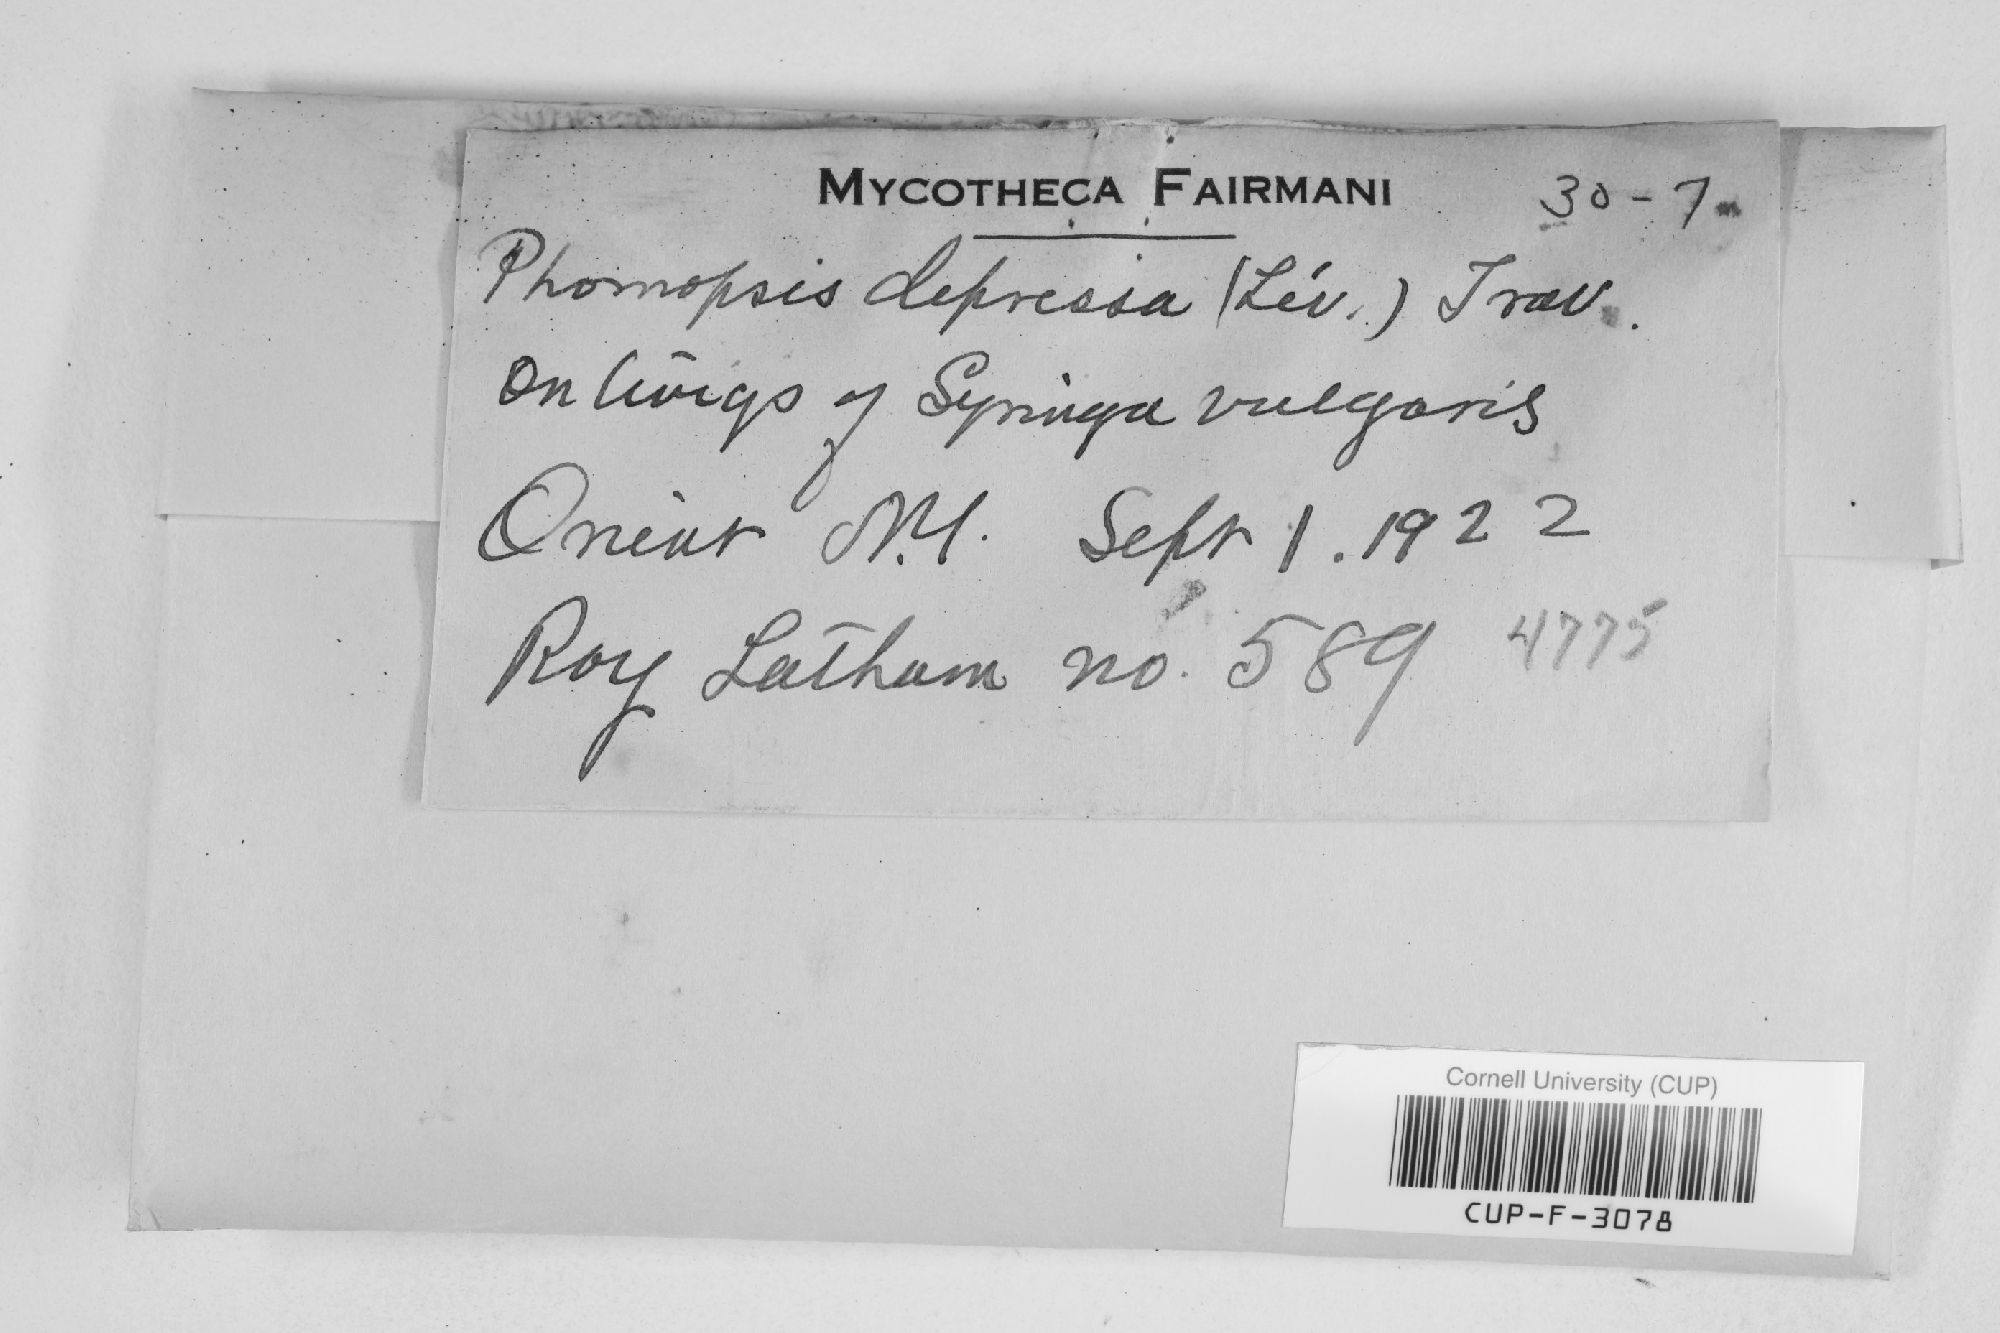 MYCOTHECA FAIRMANI
30-7
Phomopsis depressa (Lév.) Trav.
on twigs of Syringa vulgaris
Orient N.Y. Sept 1. 1922
Roy Latham no. 589 4775
Cornell University (CUP)
CUP-F-3078